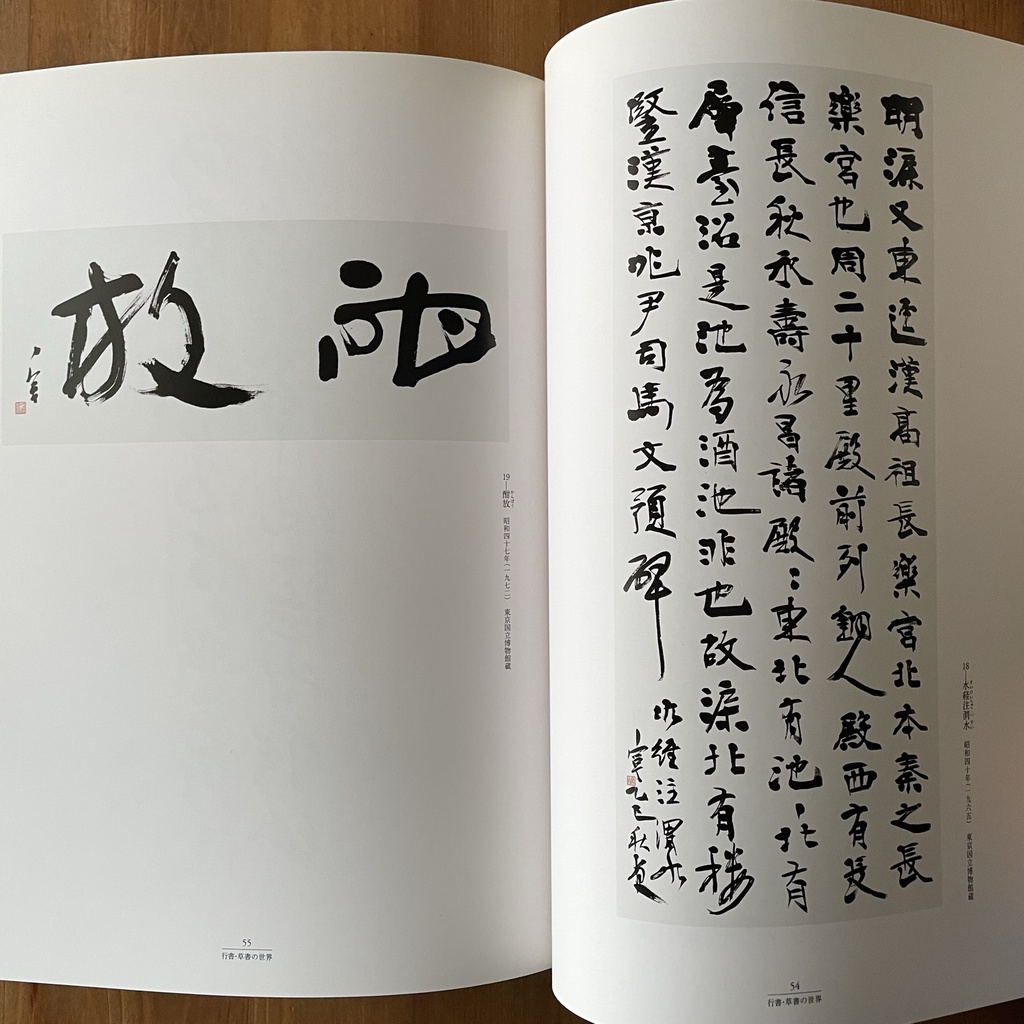 18—水経注渭水 昭和四十年(一九六五) 東京国立博物館蔵
明渠又東逕漢高祖長樂宮北本秦之長
樂宮也周二十里殿前列銅人殿西有長
信長秋永壽永昌諸殿〻東北有池〻北有
層臺沼是池爲酒池非也故渠北有樓
豎漢京兆尹司馬文預碑
水經注渭水
乙巳秋
54
行書・草書の世界
19—酣放 昭和四十七年(一九七二) 東京国立博物館蔵
酣放
55
行書・草書の世界